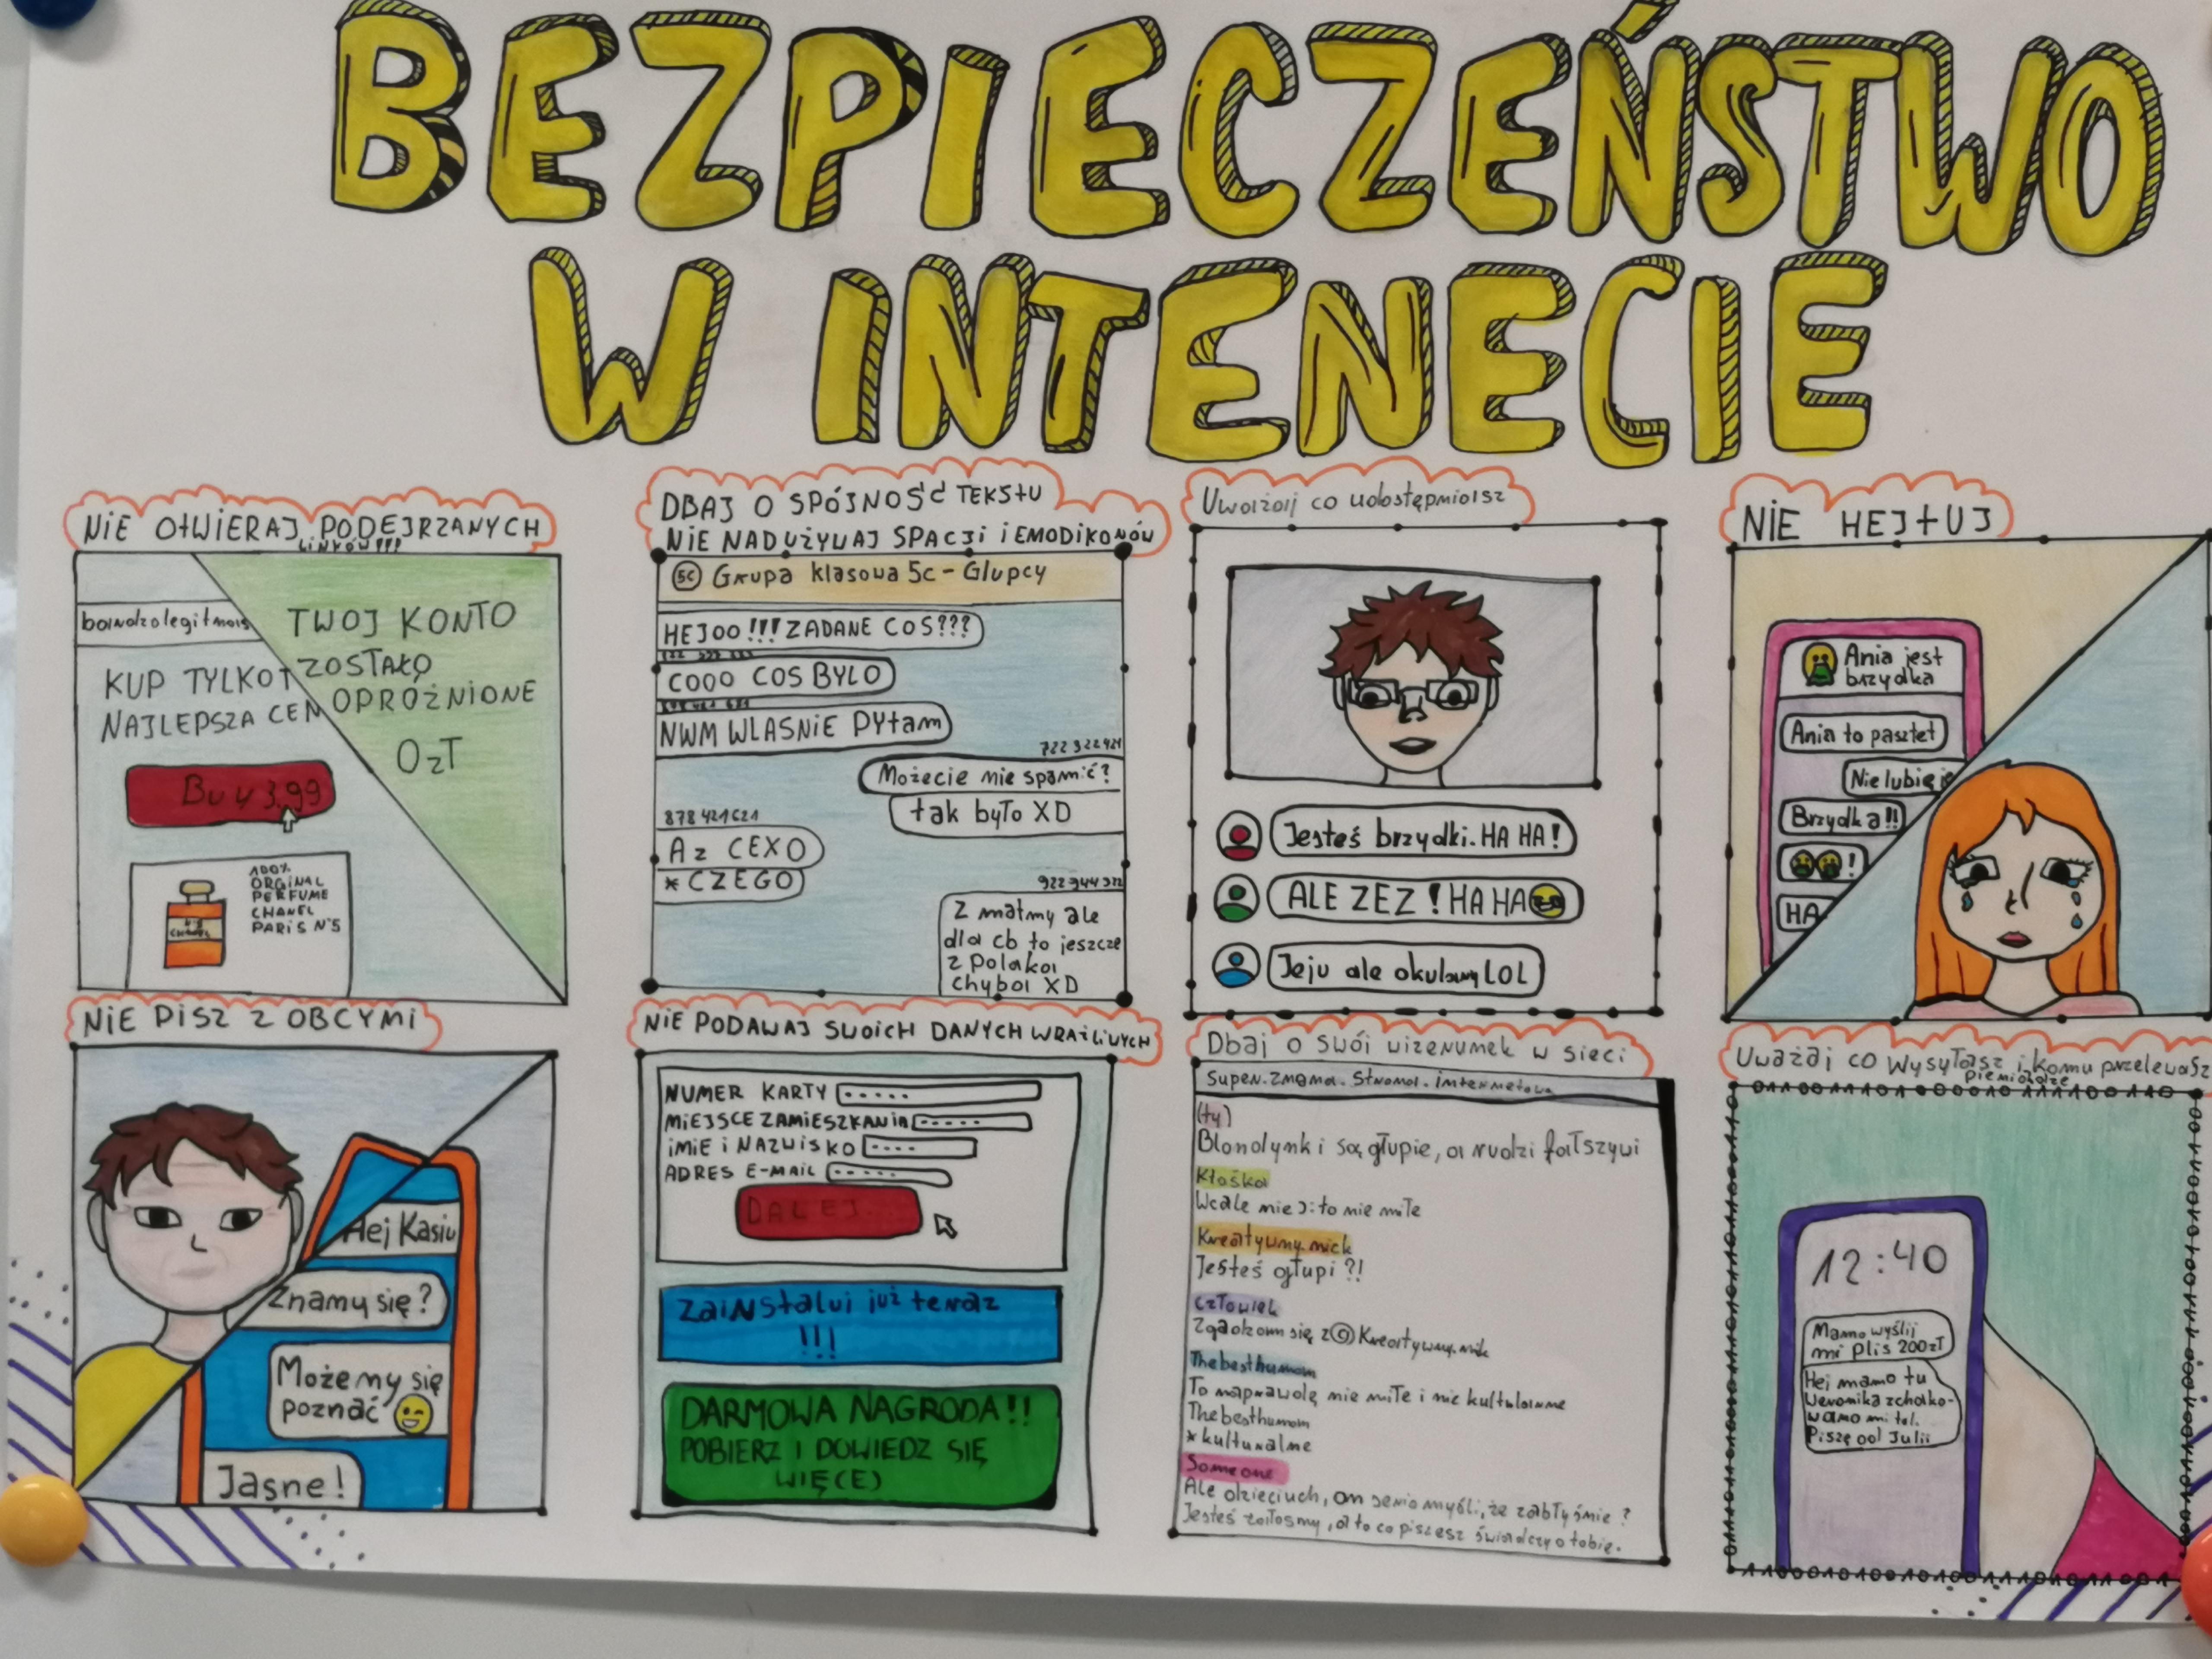 BEZPIECZEŃSTWO
W INTENECIE
NIE OtWIERAJ PODEJRZANYCH
LINKÓW!!!
KUP TYLKO T
NAJLEPSZA CEN
Buy 3.99
100%
ORGINAL
PERFUME
CHANEL
PARIS N°5
N°5
CHANEL
TWOJ KONTO
ZOSTAŁO
OPRÓŻNIONE
0zŁ
DBAJ O SPÓJNOŚĆ TEKStU
NIE NADUŻYWAJ SPACJI i EMODIKONÓW
5c Grupa klasowa 5c - Glupcy
HEJOO !!! ZADANE COS???
COOO COS BYLO
NWM WLASNIE PYtam
722 322 421
Możecie nie spamić?
tak było XD
878 421 621
Az CEXO
*CZEGO
922 944 322
Z matmy ale
dla cb to jeszcze
z polaka
chyba XD
Uważaj co udostępniasz
Jesteś brzydki. HA HA!
ALE ZEZ! HA HA
Jeju ale okulary LOL
NIE HEJtUJ
Ania jest
brzydka
Ania to pasztet
Nie lubię je
Brzydka!!
!
HA
NIE PISZ Z OBCYMI
Hej Kasiu
Znamy się?
Możemy się
poznać
Jasne!
NIE PODAWAJ SWOICH DANYCH WRAżLiWYCH
NUMER KARTY
MiEJSCE ZAMIESZKANIA
iMIE i NAZWISKO
ADRES E-MAIL
DALEJ...
Zainstaluj już teraz
!!!
DARMOWA NAGRODA!!
POBIERZ I DOWIEDZ SIĘ
WIĘCEJ
Dbaj o swój wizerunek w sieci
super.zmama.stroma.internetowa
(ty)
Blondynki są głupie, a rudzi fałszywi
Kłośka
Wcale nie ): to nie miłe
Kreatywny.nick
Jesteś głupi?!
Człowiek
Zgadzam się z @Kreatywny.nik
Thebesthuman
To naprawdę nie miłe i nie kultularne
Thebesthuman
*kulturalne
Someone
Ale dzieciuch, on serio myśli, że zabłyśnie?
Jesteś żałosny, a to co piszesz świadczy o tobie.
Uważaj co wysyłasz i komu przelewasz
pieniądze
12:40
Mamo wyślij
mi plis 200zł
Hej mamo tu
Weronika zchako-
wano mi tel.
Piszę od Julii